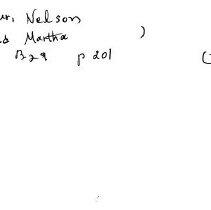 Nelson
Martha )
B29 p 201